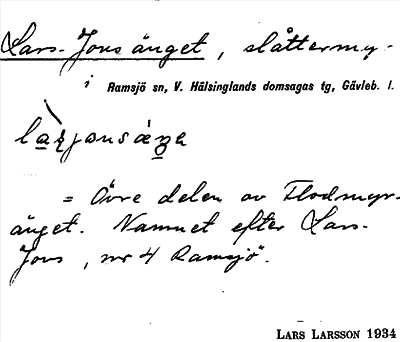 Lars-Jonsänget, slåttermy-
i Ramsjö sn, V. Hälsinglands domsagas tg, Gävleb. l.
= Övre delen av Flodmyr-
änget. Namnet efter Lars-
Jons, nr 4 Ramsjö".
LARS LARSSON 1934